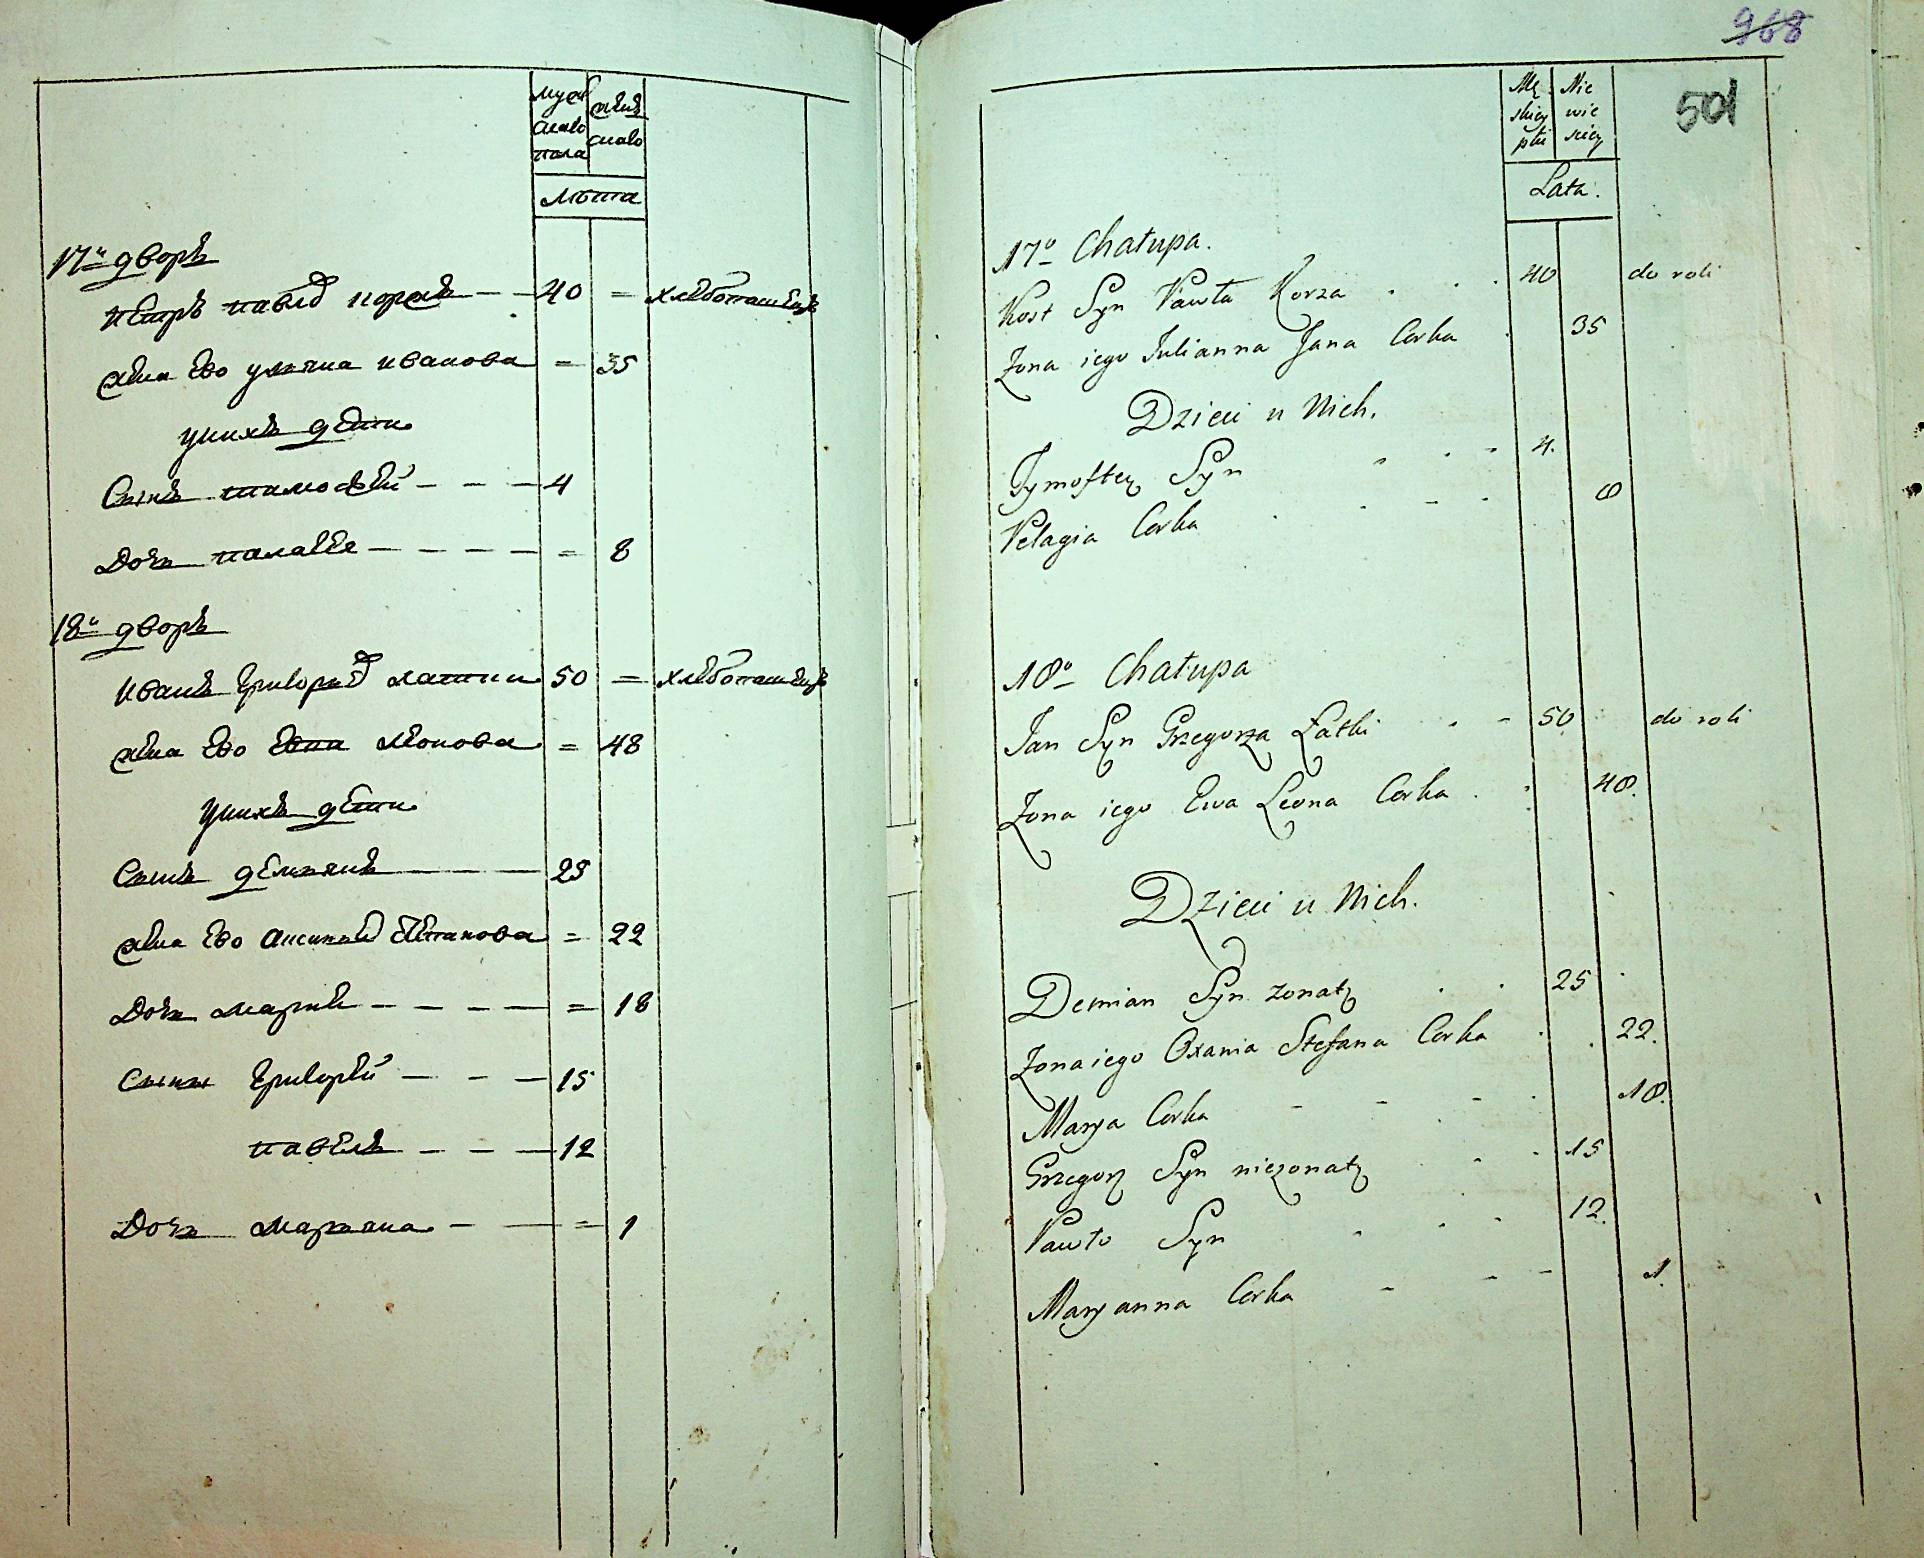 муж
скаго
пола
женс
скаго
лѣта
17й дворъ
Петръ павлов корж 40 = хлебопашецъ
жена Ево ульяна иванова = 35
уних дети
Сынъ тимофей 4
Дочь палагея = 8
18й дворъ
Иванъ Григорьев латки 50 = хлебопашецъ
жена Ево Евва леонова = 48
уних дети
Сынъ демьянъ 25
жена Ево аксинья Степанова = 22
Дочь мария = 18
Сыны Григорей 15
павелъ 12
Дочь марьяна = 1
968
501
Mę
skiey
płci
Nie
wie
sciey
Lata.
17º Chałupa.
Kost Syn Pawła Korza 40 do roli
Zona iego Julianna Jana Corka 35
Dzieci u Nich.
Tymoftey Syn 4.
Pelagia Corka 8
18º Chałupa
Jan Syn Grzegorza Łatki 50 do roli
Zona iego Ewa Leona Corka 48.
Dzieci u Nich.
Demian Syn zonaty 25
Zona iego Oxania Stefana Corka 22.
Marya Corka 18.
Grzegorz Syn niezonaty 15
Pawło Syn 12.
Maryanna Corka 1.